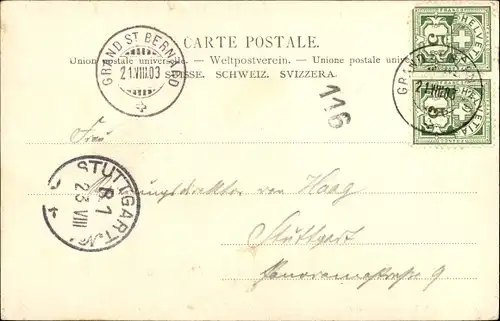 CARTE POSTALE.
Union postale universelle. — Weltpostverein. — Unione postale universale
SUISSE. SCHWEIZ. SVIZZERA.
GRAND ST BERNARD
21.VIII.03
HELVETIA
5
GRAND ST BERNARD
21.VIII.03
HELVETIA
116
Frau
von Haag
Stuttgart
Panoramastraße 9
STUTTGART No 1
B 1
23 VIII